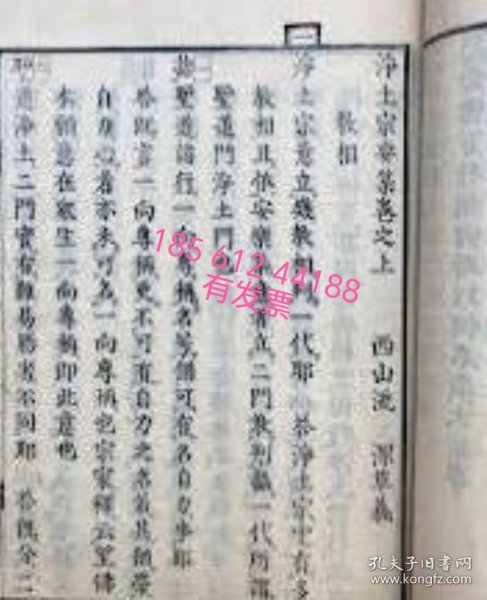 淨土宗要集卷之上 西山流 深草義
教相
淨土宗意立幾教相判一代耶 答淨土宗中有多
教相且依安樂集意者立二門教判攝一代所謂
聖道門淨土門也
聖道諸行一向專稱名號須可有名自力事耶
答既言一向專稱更不可有自力之名義其猶榮
自力心者亦未可名一向專稱也宗家釋云望佛
本願意在眾生一向專稱即此意也
聖道淨土二門實有難易勝劣不同耶 答既分二
185 612 44188
有发票
孔夫子旧书网
www.kongfz.com